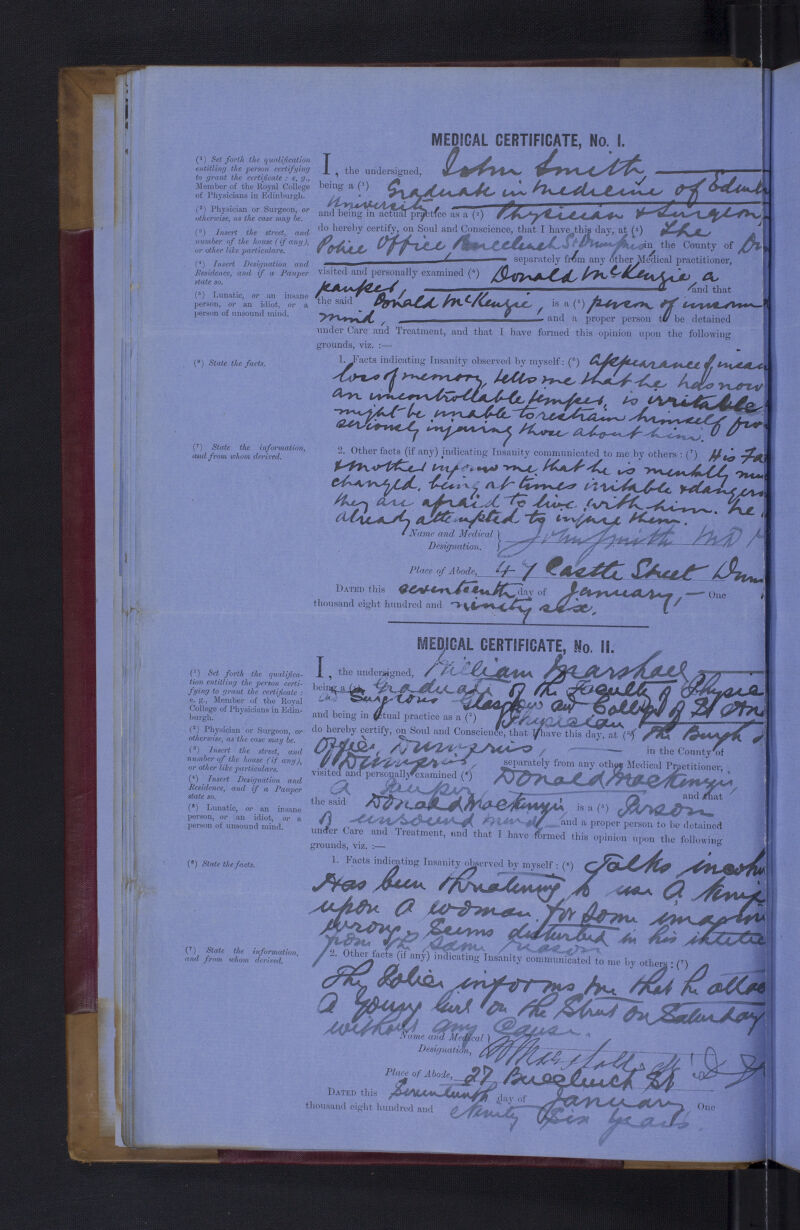 MEDICAL CERTIFICATE, No. I.
(¹) Set forth the qualification
entitling the person certifying
to grant the certificate: e. g.,
Member of the Royal College
of Physicians in Edinburgh.
(²) Physician or Surgeon, or
otherwise, as the case may be.
(³) Insert the street, and
number of the house (if any),
or other like particulars.
(⁴) Insert Designation and
Residence, and if a Pauper
state so.
(⁵) Lunatic, or an insane
person, or an idiot, or a
person of unsound mind.
I, the undersigned, John Smith
being a (¹) Graduate in Medicine of Edinb
University,
and being in actual practice as a (²) Physician & Surgeon,
do hereby certify, on Soul and Conscience, that I have this day, at (³) The
Police Office, Buccleuch St Dumfries in the County of Du
separately from any other Medical practitioner,
visited and personally examined (⁴) Donald McKenzie a
pauper, and that
the said Donald McKenzie, is a (⁵) person of unsoun
mind, and a proper person to be detained
under Care and Treatment, and that I have formed this opinion upon the following
grounds, viz. :—
(⁶) State the facts.
1. Facts indicating Insanity observed by myself: (⁶) Appearance of insan
loss of memory, tells me that he has now
an uncontrollable temper, is irritable
might be unable to restrain himself fro
seriously injuring those about him.
(⁷) State the information,
and from whom derived.
2. Other facts (if any) indicating Insanity communicated to me by others: (⁷) His Fa
& mother inform me that he is mentally mu
changed, being at times irritable & dangero
they are afraid to live with him. he
already attempted to injure them.
Name and Medical
Designation. John Smith MD
Place of Abode, 47 Castle Street Dum
DATED this seventeenth day of January, One
thousand eight hundred and ninety six.
MEDICAL CERTIFICATE, No. II.
(¹) Set forth the qualifica-
tion entitling the person certi-
fying to grant the certificate:
e. g., Member of the Royal
College of Physicians in Edin-
burgh.
(²) Physician or Surgeon, or
otherwise, as the case may be.
(³) Insert the street, and
number of the house (if any),
or other like particulars.
(⁴) Insert Designation and
Residence, and if a Pauper
state so.
(⁵) Lunatic, or an insane
person, or an idiot, or a
person of unsound mind.
I, the undersigned, William Marshall
being a (¹) Graduate of the Faculty of Physic
and Surgeons Glasgow and College of St And
and being in actual practice as a (²) Physician
do hereby certify, on Soul and Conscience, that I have this day, at (³) The Burgh
Office, Dumfries, in the County of
Dumfries, separately from any other Medical Practitioner,
visited and personally examined (⁴) Donald Mackenzie,
a Pauper and that
the said Donald Mackenzie is a (⁵) Person
of unsound mind, and a proper person to be detained
under Care and Treatment, and that I have formed this opinion upon the following
grounds, viz. :—
(⁶) State the facts.
1. Facts indicating Insanity observed by myself: (⁶) Talks incohe
Has been threatening to use a knife
upon a woman for some imagin
wrong. Seems disturbed in his intelle
from the same reason
(⁷) State the information,
and from whom derived.
2. Other facts (if any) indicating Insanity communicated to me by others: (⁷)
The Police informs me that he attac
a young Girl on the Street on Saturday
without any Cause.
Name and Medical
Designation, W Marshall
Place of Abode, 27 Buccleuch St
DATED this Seventeenth day of January, One
thousand eight hundred and Ninety Six years.